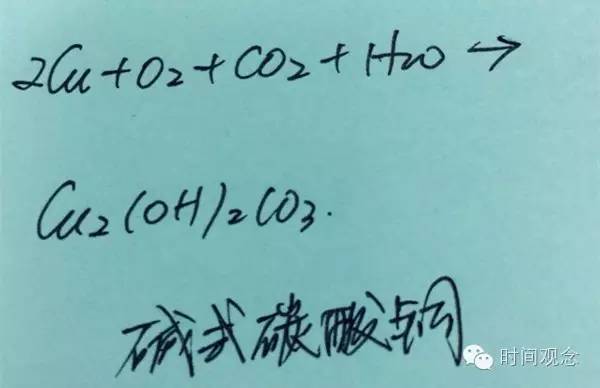 2Cu+O2+CO2+H2O→
Cu2(OH)2CO3.
碱式碳酸铜
时间观念